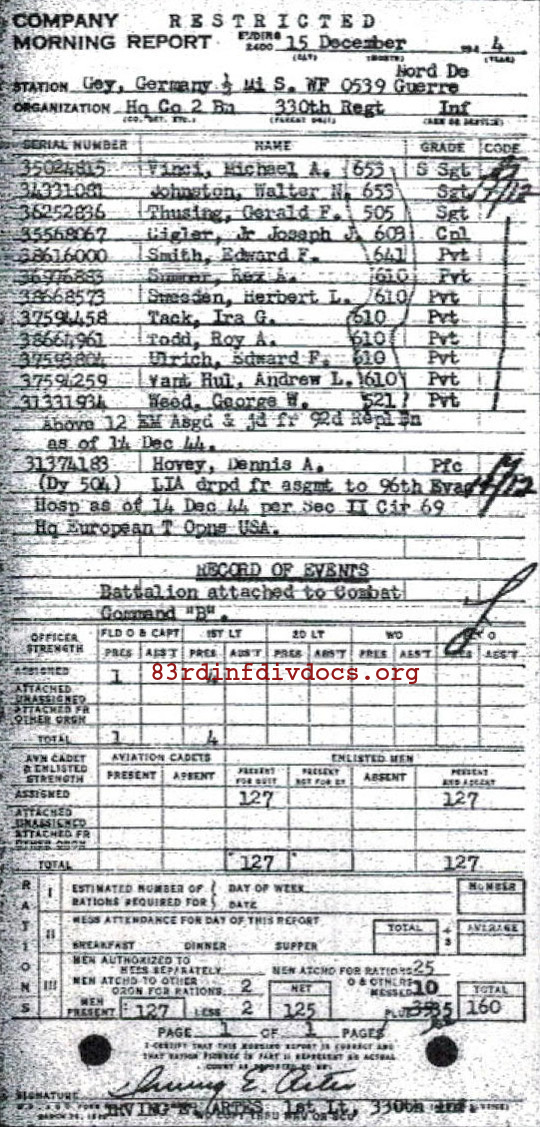 COMPANY RESTRICTED
MORNING REPORT ENDING 2400 15 December 194 4
(DAY) (MONTH) (YEAR)
Nord De
STATION Gey, Germany ½ Mi S. WF 0539 Guerre
ORGANIZATION Hq Co 2 Bn 330th Regt Inf
(CO., DET., ETC.) (PARENT UNIT) (ARM OR SERVICE)
SERIAL NUMBER NAME GRADE CODE
35024815 Vinci, Michael A. 653 S Sgt
34331081 Johnston, Walter N. 653 Sgt
36252836 Thusing, Gerald F. 505 Sgt
35568067 Cigler, Jr Joseph J. 603 Cpl
38616000 Smith, Edward F. 641 Pvt
36976883 Sumner, Rex A. 610 Pvt
38668573 Herbert L. 610 Pvt
37594458 Tack, Ira G. 610 Pvt
38664961 Todd, Roy A. 610 Pvt
37593804 Ulrich, Edward F. 610 Pvt
37594259 Vant Hul, Andrew L. 610 Pvt
31331934 Weed, George W. 521 Pvt
Above 12 EM Asgd & jd fr 92d Repl Bn
as of 14 Dec 44.
31374183 Hovey, Dennis A. Pfc
(Dy 504) LIA drpd fr asgmt to 96th Evac
Hosp as of 14 Dec 44 per Sec II Cir 69
Hq European T Opns USA.
RECORD OF EVENTS
Battalion attached to Combat
Command "B".
OFFICER STRENGTH FLD O & CAPT 1ST LT 2D LT WO
PRES ABS'T PRES ABS'T PRES ABS'T PRES ABS'T PRES ABS'T
ASSIGNED 1 4
83rdinfdivdocs.org
ATTACHED UNASSIGNED
ATTACHED FR OTHER ORGN
TOTAL 1 4
AVN CADET & ENLISTED STRENGTH AVIATION CADETS ENLISTED MEN
PRESENT ABSENT PRESENT FOR DUTY PRESENT NOT FOR DY ABSENT PRESENT AND ABSENT
ASSIGNED 127 127
ATTACHED UNASSIGNED
ATTACHED FR OTHER ORGN
TOTAL 127 127
RATIONS
I ESTIMATED NUMBER OF RATIONS REQUIRED FOR DAY OF WEEK DATE NUMBER
II MESS ATTENDANCE FOR DAY OF THIS REPORT
BREAKFAST DINNER SUPPER TOTAL ÷ 3 AVERAGE
III MEN AUTHORIZED TO MESS SEPARATELY MEN ATCHD FOR RATIONS 25
MEN ATCHD TO OTHER ORGN FOR RATIONS 2 NET O & OTHERS MESSED 10 TOTAL
MEN PRESENT 127 LESS 2 125 PLUS 35 160
PAGE 1 OF 1 PAGES
I CERTIFY THAT THIS MORNING REPORT IS CORRECT AND
THAT RATION FIGURES IN PART II REPRESENT AN ACTUAL
COUNT AS REPORTED TO ME:
SIGNATURE Irving E. Artes
IRVING E. ARTES 1st Lt, 330th Inf